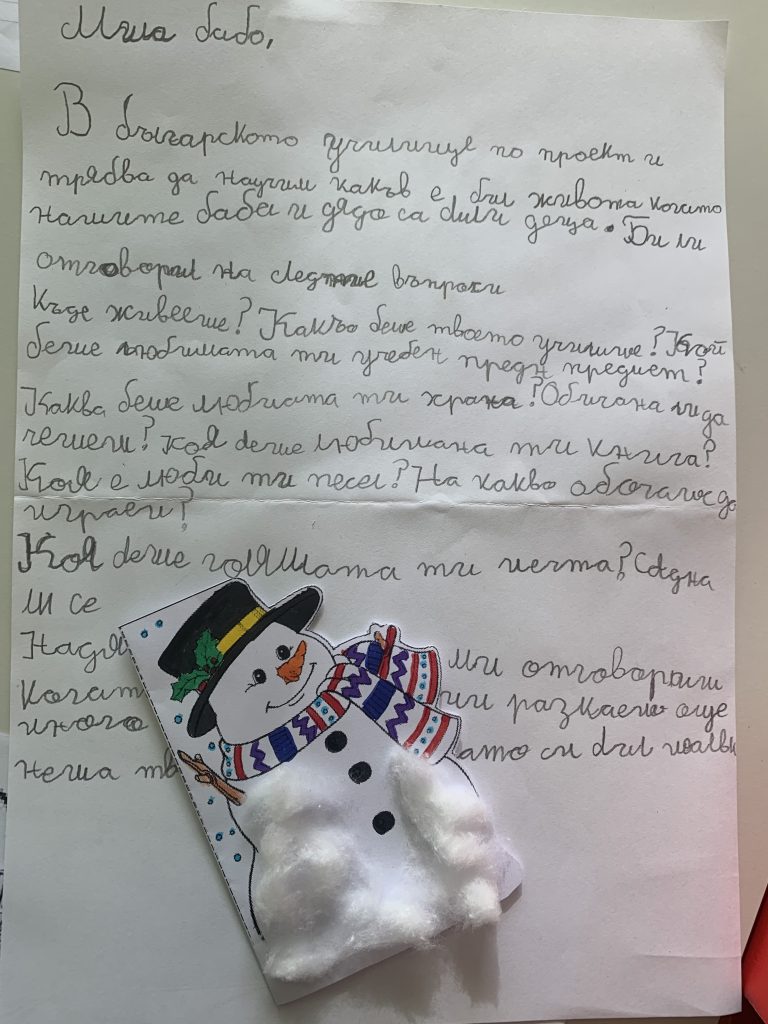 Мила бабо,
В българското училище по проект и
трябва да научим какъв е бил живота когато
нашите баби и дядо са били деца. Би ли
отговорил на въпроси
Къде живееше? Какво беше твоето училище? Кой
беше любимата ти учебен предн предмет?
Каква беше любмата ти храна? Обичана ли да
четеш? Коя беше любимана ти книга?
Коя е люби ти песен? На какво обочаше да
играеш?
Коя беше голямата ти мечта? Сбдна
ли се
Надя ми отговориш
Когат ми разкаеш още
много ато си бил малък
неша тв